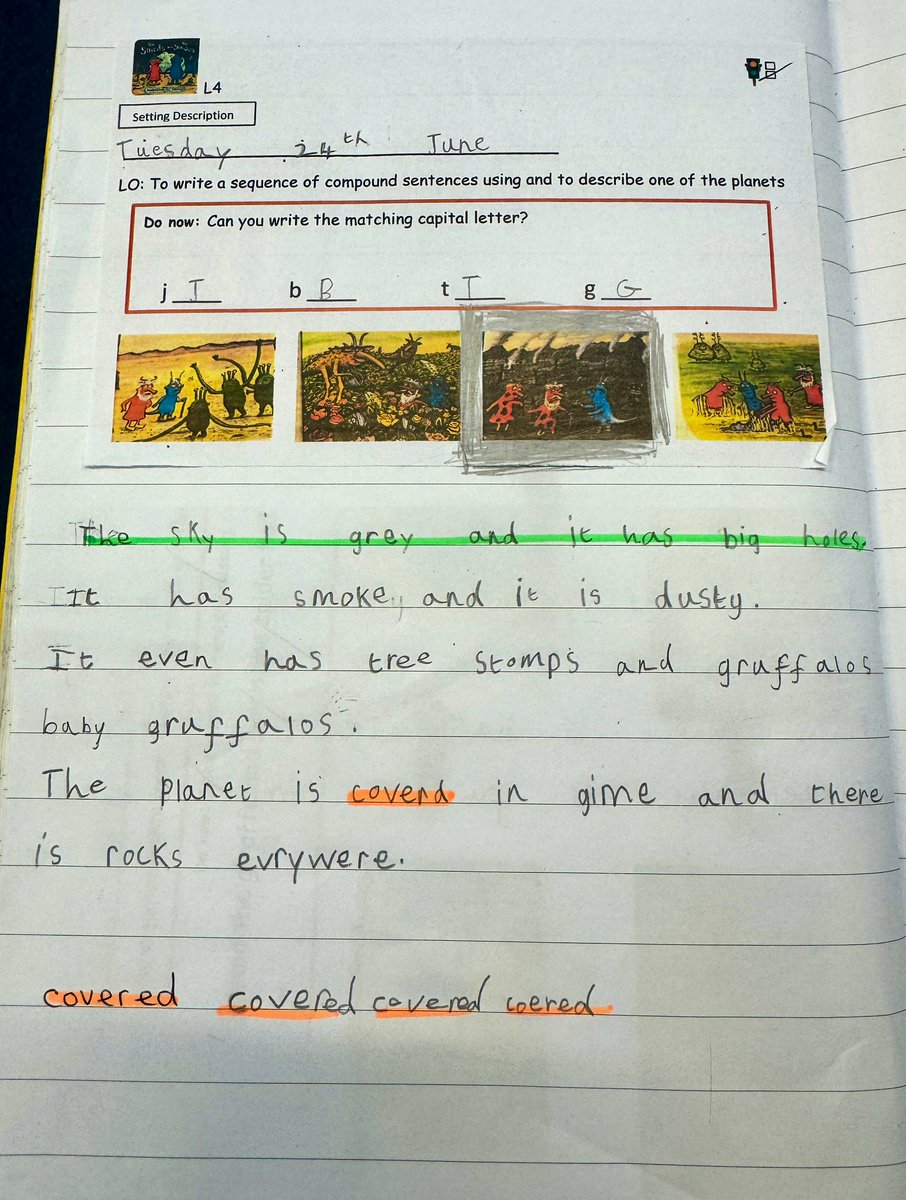 The Smeds and The Smoos
L4
Setting Description
Tuesday 24th June
LO: To write a sequence of compound sentences using and to describe one of the planets
Do now: Can you write the matching capital letter?
j J b B t T g G
The sky is grey and it has big holes.
It has smoke and it is dusty.
It even has tree stomps and gruffalos
baby gruffalos.
The planet is coverd in gime and there
is rocks evrywere.
covered covered covered coered